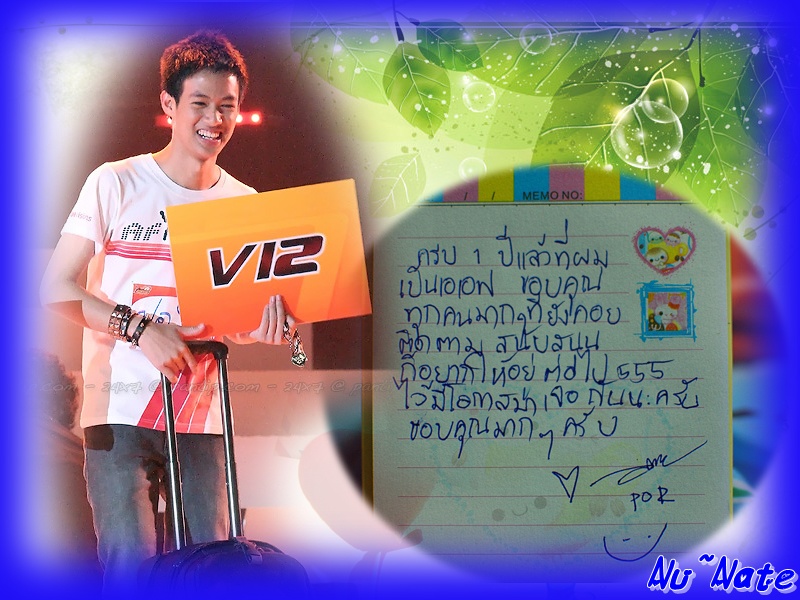 AF
V12
/ /
MEMO NO:
ครบ 1 ปีแล้วที่ผม
เป็นเอเอฟ ขอบคุณ
ทุกคนมากๆที่ยังคอย
ติดตาม สนับสนุน
ก็อยากให้อยู่ต่อไป 555
ไว้มีโอกาสมาเจอกันนะครับ
ขอบคุณมาก ๆ ครับ
POR
Nu~Nate